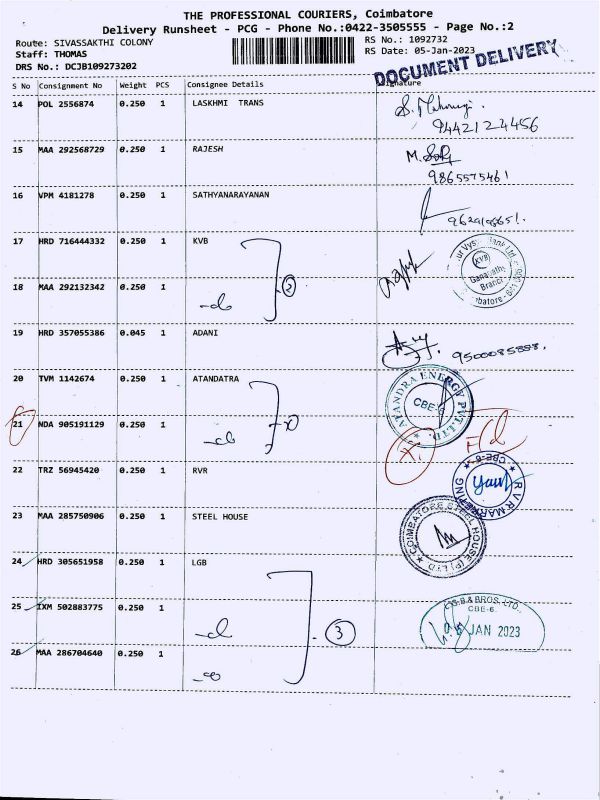 THE PROFESSIONAL COURIERS, Coimbatore
Delivery Runsheet - PCG - Phone No.:0422-3505555 - Page No.:2
Route: SIVASSAKTHI COLONY
RS No.: 1092732
Staff: THOMAS
RS Date: 05-Jan-2023
DRS No.: DCJB109273202
DOCUMENT DELIVERY
S No Consignment No Weight PCS Consignee Details Signature
14 POL 2556874 0.250 1 LASKHMI TRANS
9442124456
15 MAA 292568729 0.250 1 RAJESH
9865575461
16 VPM 4181278 0.250 1 SATHYANARAYANAN
17 HRD 716444332 0.250 1 KVB
KVB
Ganapathy
Branch
18 MAA 292132342 0.250 1
2
19 HRD 357055386 0.045 1 ADANI
9500085888.
20 TVM 1142674 0.250 1 ATANDATRA
ATANDRA ENERGY PVT.LTD.
CBE-6
21 NDA 905191129 0.250 1
22 TRZ 56945420 0.250 1 RVR
R V R MARKETING
CBE-6.
23 MAA 285750906 0.250 1 STEEL HOUSE
COIMBATORE STEEL HOUSE (P) LTD
24 HRD 305651958 0.250 1 LGB
25 IXM 502883775 0.250 1
3
L.G.B & BROS. LTD.,
CBE-6.
05 JAN 2023
26 MAA 286704640 0.250 1